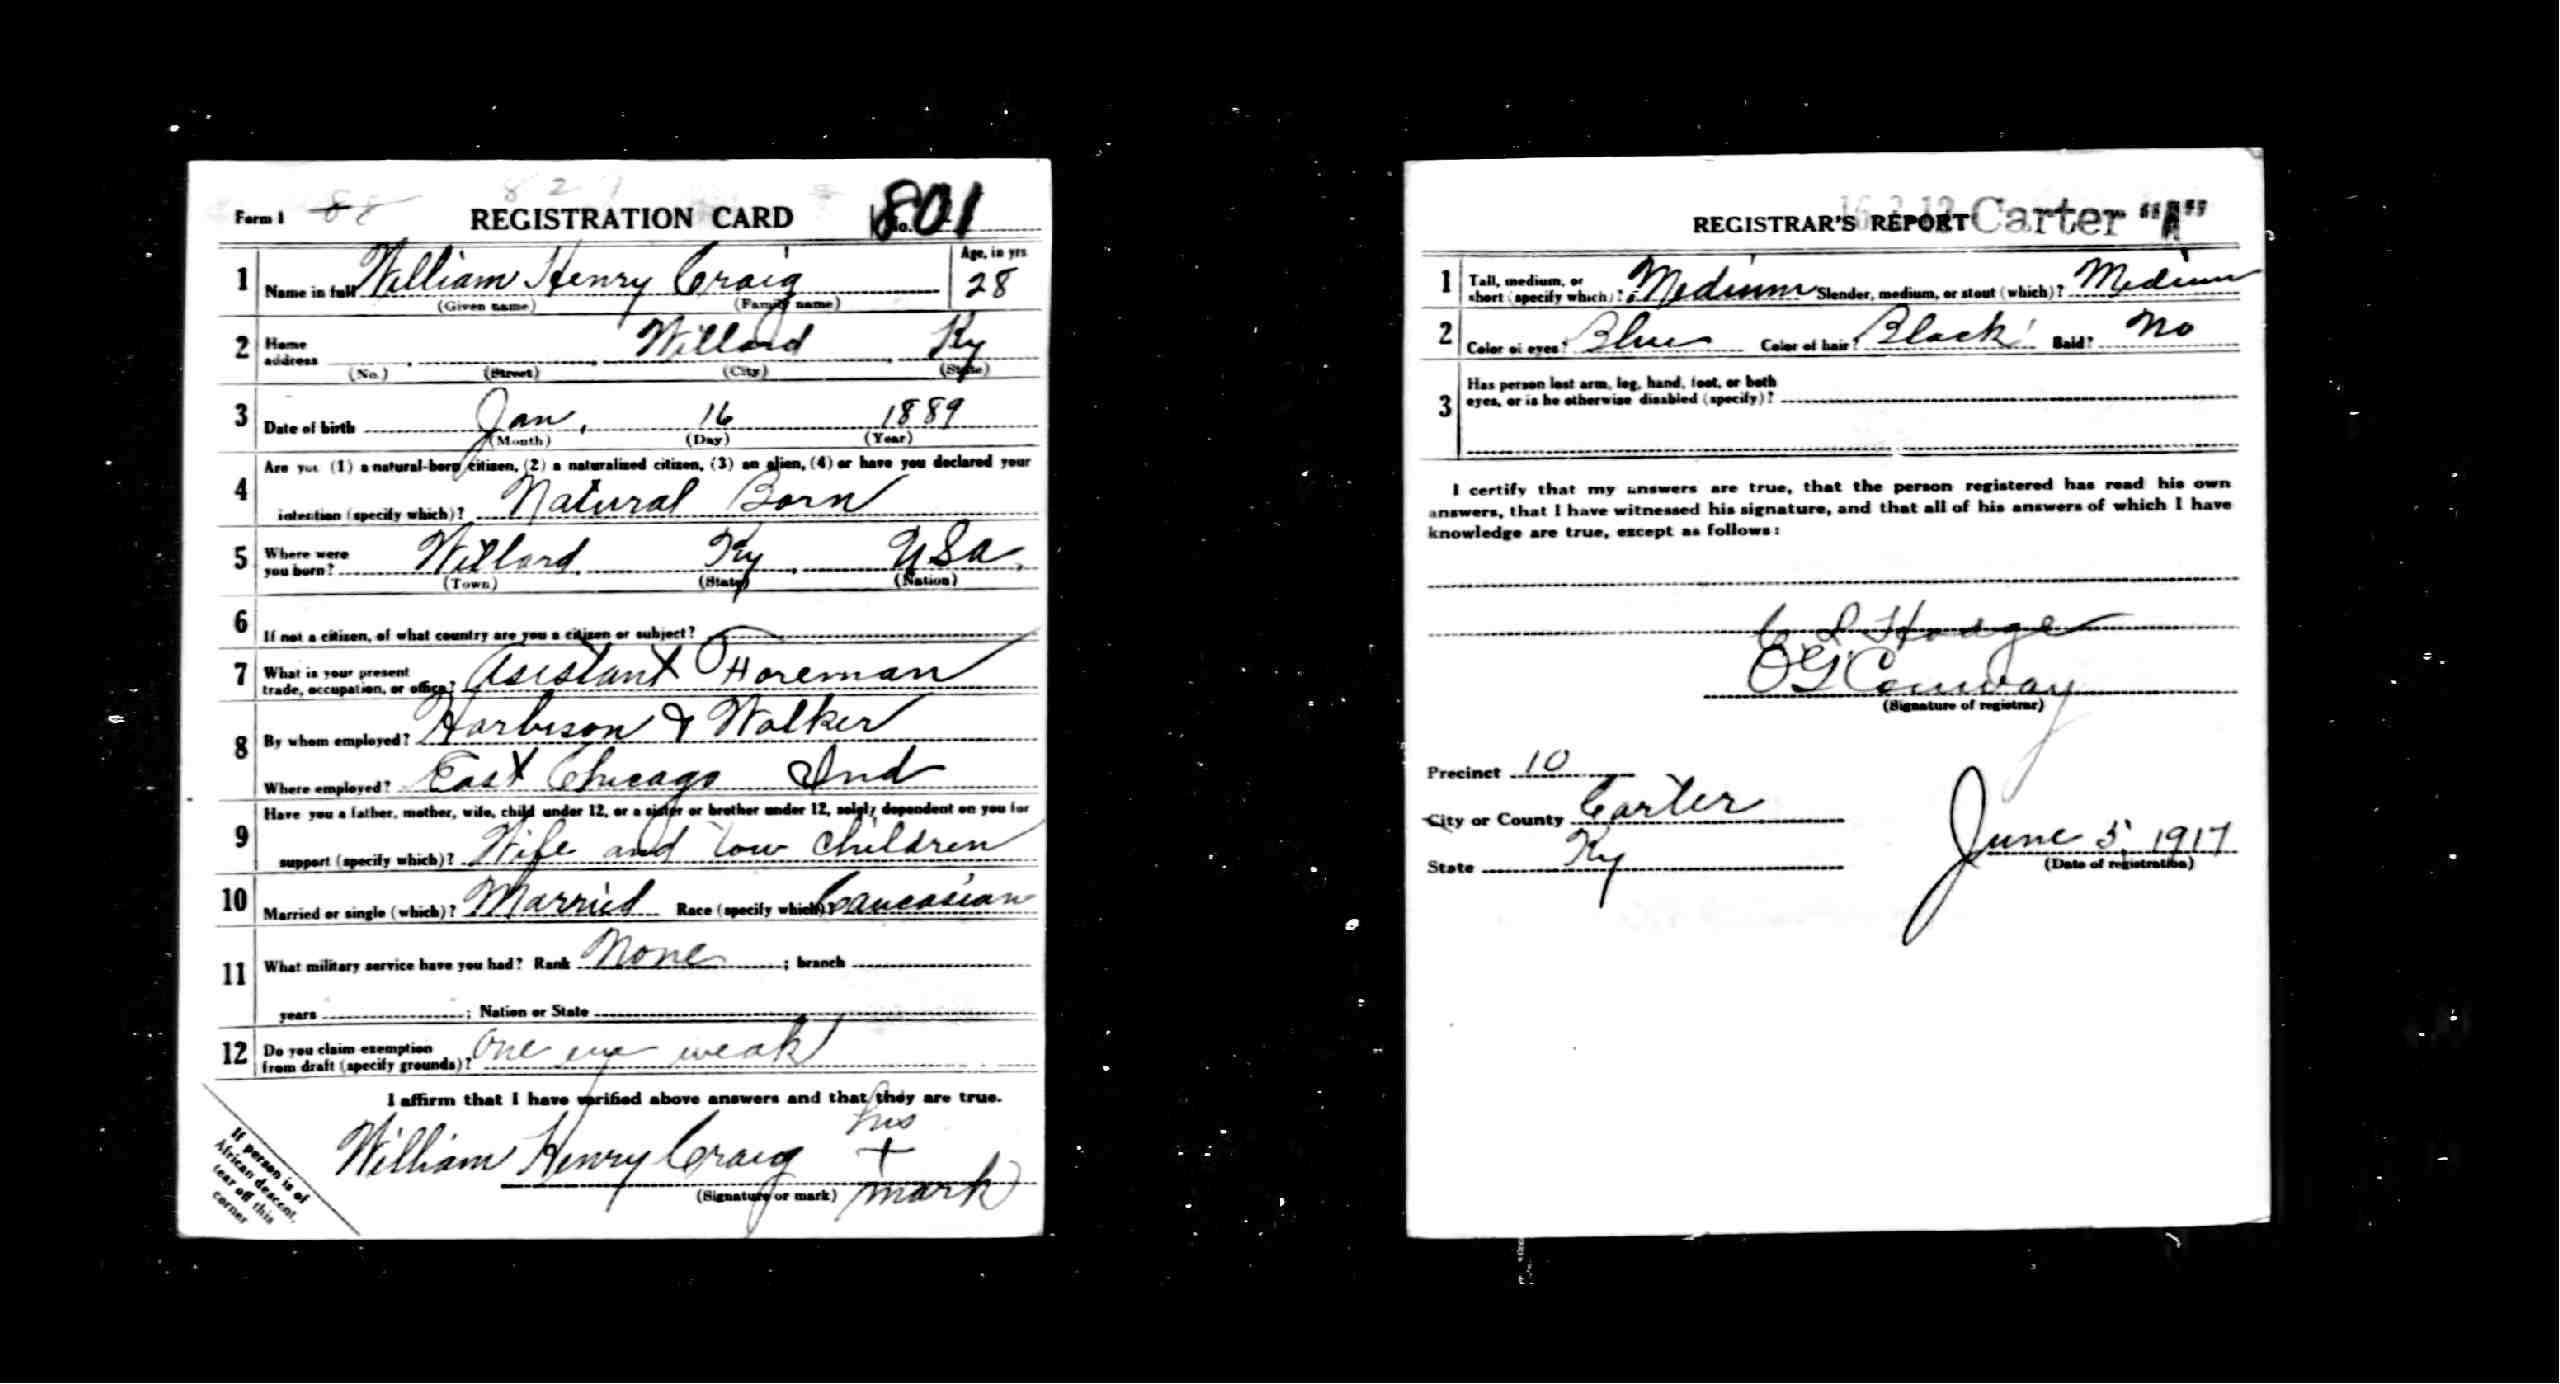 Form 1 88 829
REGISTRATION CARD No. 801
1 Name in full William Henry Craig Age, in yrs 28
(Given name) (Family name)
2 Home address Willard Ky
(No.) (Street) (City) (State)
3 Date of birth Jan. 16 1889
(Month) (Day) (Year)
4 Are you (1) a natural-born citizen, (2) a naturalized citizen, (3) an alien, (4) or have you declared your
intention (specify which)? Natural Born
5 Where were you born? Willard Ky USa.
(Town) (State) (Nation)
6 If not a citizen, of what country are you a citizen or subject?
7 What is your present trade, occupation, or office? Asistant Foreman
8 By whom employed? Harbison & Walker
Where employed? East Chicago Ind
9 Have you a father, mother, wife, child under 12, or a sister or brother under 12, solely dependent on you for
support (specify which)? Wife and tow children
10 Married or single (which)? Married Race (specify which)? Caucasian
11 What military service have you had? Rank None ; branch
years ; Nation or State
12 Do you claim exemption from draft (specify grounds)? One eye weak
I affirm that I have verified above answers and that they are true.
his
William Henry Craig +
(Signature or mark) mark
If person is of
African descent,
tear off this
corner
REGISTRAR'S REPORT Carter "A"
1 Tall, medium, or short (specify which)? Medium Slender, medium, or stout (which)? Medium
2 Color of eyes? Blue Color of hair? Black Bald? No
3 Has person lost arm, leg, hand, foot, or both
eyes, or is he otherwise disabled (specify)?
I certify that my answers are true, that the person registered has read his own
answers, that I have witnessed his signature, and that all of his answers of which I have
knowledge are true, except as follows:
C L Hodge
O G Conway
(Signature of registrar)
Precinct 10
City or County Carter
State Ky
June 5, 1917
(Date of registration)